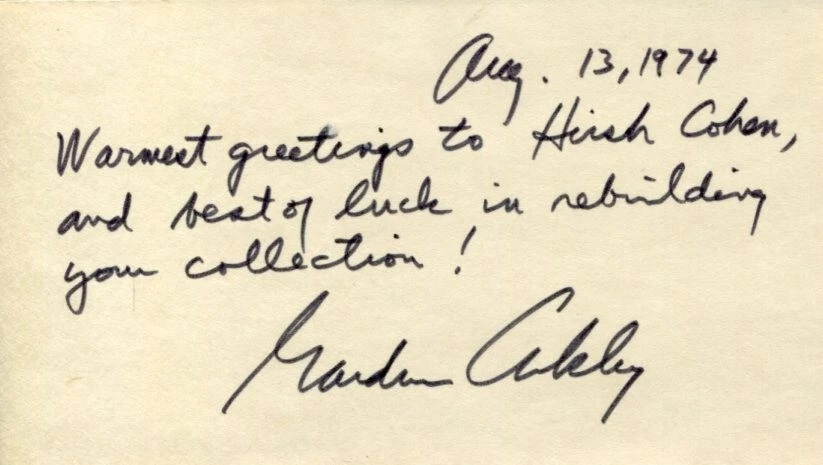 Aug. 13, 1974
Warmest greetings to Hirsh Cohen,
and best of luck in rebuilding
your collection!
Gardner Ackley